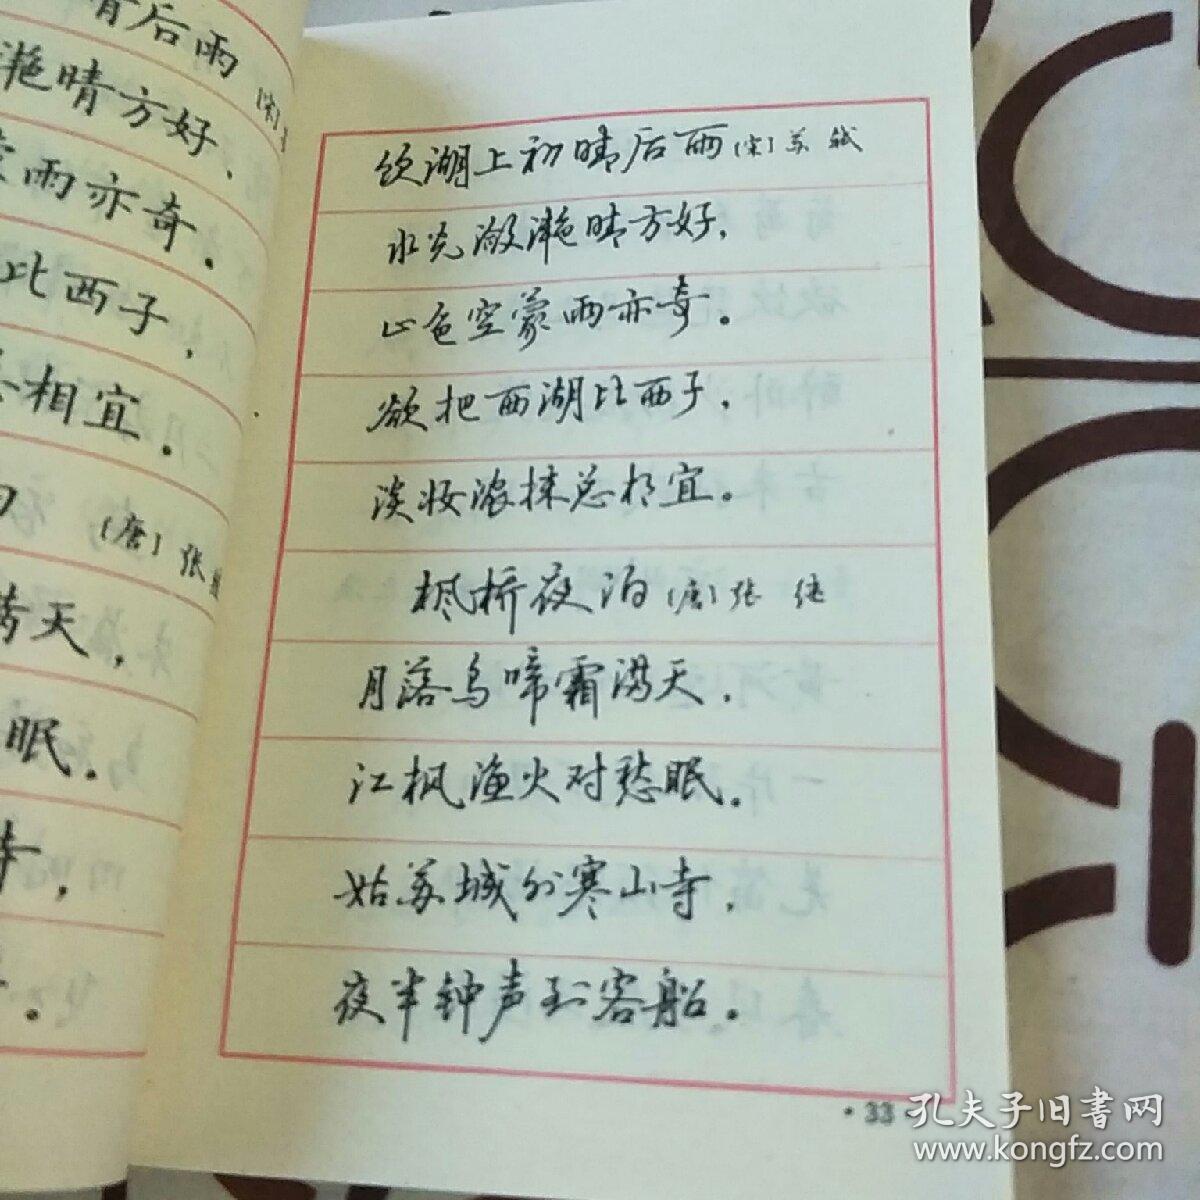 晴后雨
〔宋〕
滟晴方好，
雨亦奇。
比西子，
相宜。
〔唐〕张继
满天，
眠。
寺，
饮湖上初晴后雨〔宋〕苏 轼
水光潋滟晴方好，
山色空蒙雨亦奇。
欲把西湖比西子，
淡妆浓抹总相宜。
枫桥夜泊〔唐〕张 继
月落乌啼霜满天，
江枫渔火对愁眠。
姑苏城外寒山寺，
夜半钟声到客船。
·33·
孔夫子旧书网
www.kongfz.com